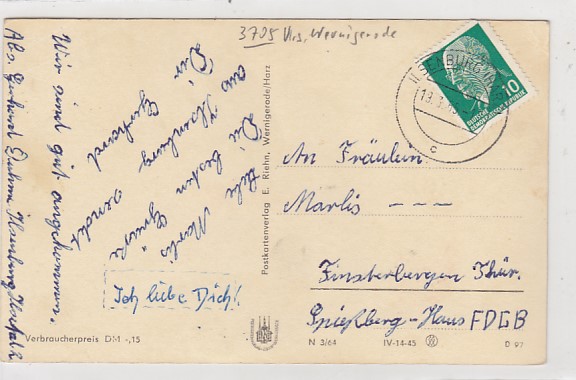 3705 Krs. Wernigerode
Liebe Marlis
Die besten Grüße
aus Ilsenburg sendet
Dir Gerhard
Wir sind gut angekommen.
Ich liebe Dich!
Abs. Gerhard Ilsenburg
Verbraucherpreis DM -,15
Postkartenverlag E. Riehn, Wernigerode/Harz
ILSENBURG
c
10
DEUTSCHE
DEMOKRATISCHE REPUBLIK
An Fräulein
Marlis - - -
Finsterbergen Thür.
Spießberg-Haus FDGB
N 3/64 IV-14-45 D 97